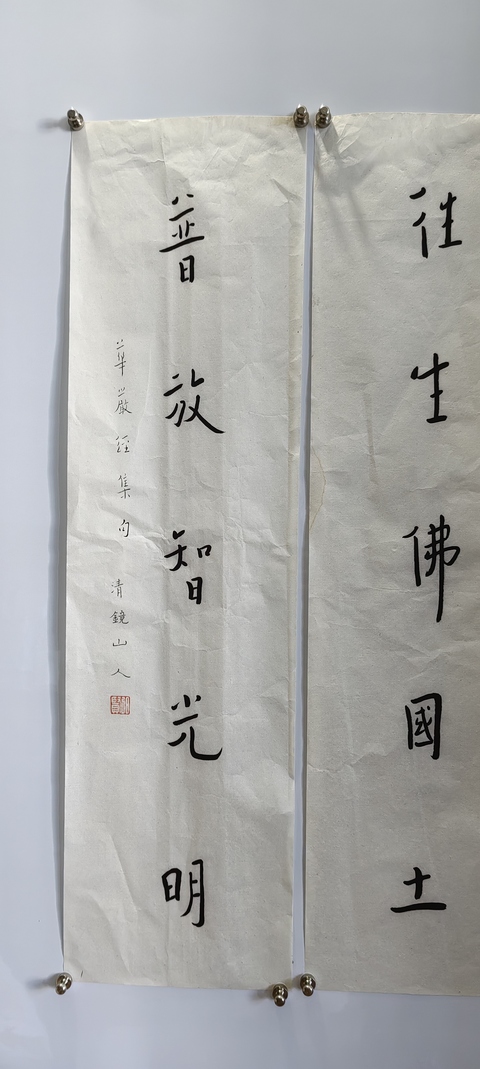 往生佛國土
普放智光明
華嚴經集句
清鏡山人